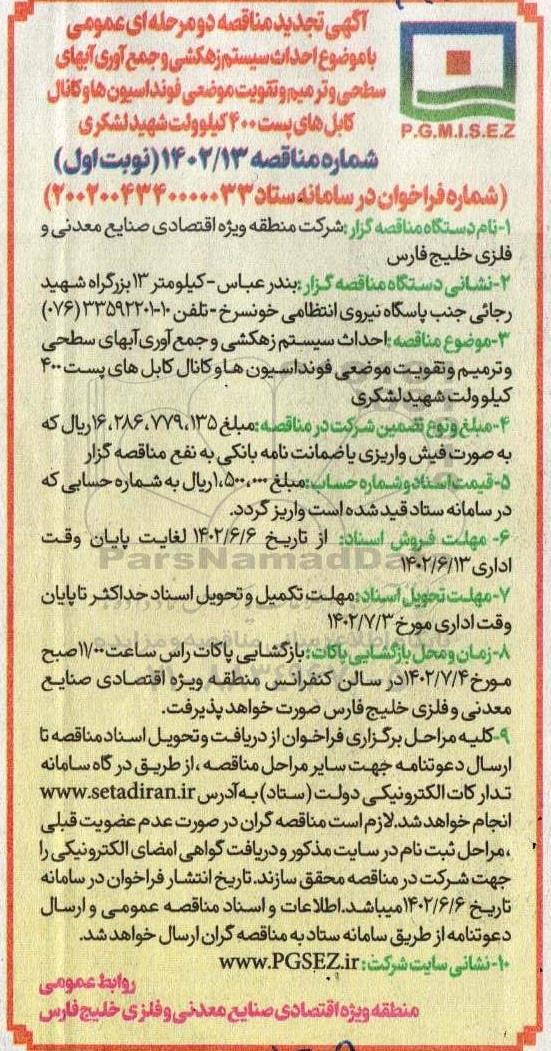 آگهی تجدید مناقصه دو مرحله ای عمومی
با موضوع احداث سیستم زهکشی و جمع آوری آبهای
سطحی و ترمیم و تقویت موضعی فونداسیون ها و کانال
کابل های پست ۴۰۰ کیلو ولت شهید لشکری
P.G.M.I.S.E.Z
شماره مناقصه ۱۴۰۲/۱۳ (نوبت اول)
(شماره فراخوان در سامانه ستاد ۲۰۰۲۰۰۴۳۴۰۰۰۰۰۳۳)
۱-نام دستگاه مناقصه گزار: شرکت منطقه ویژه اقتصادی صنایع معدنی و
فلزی خلیج فارس
۲-نشانی دستگاه مناقصه گزار: بندر عباس - کیلومتر ۱۳ بزرگراه شهید
رجائی جنب پاسگاه نیروی انتظامی خونسرخ - تلفن ۱۰-۳۳۵۹۲۲۰۱ (۰۷۶)
۳-موضوع مناقصه: احداث سیستم زهکشی و جمع آوری آبهای سطحی
و ترمیم و تقویت موضعی فونداسیون ها و کانال کابل های پست ۴۰۰
کیلو ولت شهید لشکری
۴-مبلغ و نوع تضمین شرکت در مناقصه: مبلغ ۱۶،۲۸۶،۷۷۹،۱۳۵ ریال که
به صورت فیش واریزی یا ضمانت نامه بانکی به نفع مناقصه گزار
۵-قیمت اسناد و شماره حساب: مبلغ ۱،۵۰۰،۰۰۰ ریال به شماره حسابی که
در سامانه ستاد قید شده است واریز گردد.
۶- مهلت فروش اسناد: از تاریخ ۱۴۰۲/۶/۶ لغایت پایان وقت
اداری ۱۴۰۲/۶/۱۳
ParsNamadData
۷-مهلت تحویل اسناد: مهلت تکمیل و تحویل اسناد حداکثر تا پایان
وقت اداری مورخ ۱۴۰۲/۷/۳
۸-زمان و محل بازگشایی پاکات: بازگشایی پاکات راس ساعت ۱۱/۰۰ صبح
مورخ ۱۴۰۲/۷/۴ در سالن کنفرانس منطقه ویژه اقتصادی صنایع
معدنی و فلزی خلیج فارس صورت خواهد پذیرفت.
۹-کلیه مراحل برگزاری فراخوان از دریافت و تحویل اسناد مناقصه تا
ارسال دعوتنامه جهت سایر مراحل مناقصه ، از طریق در گاه سامانه
تدارکات الکترونیکی دولت (ستاد) به آدرس www.setadiran.ir
انجام خواهد شد. لازم است مناقصه گران در صورت عدم عضویت قبلی
، مراحل ثبت نام در سایت مذکور و دریافت گواهی امضای الکترونیکی را
جهت شرکت در مناقصه محقق سازند. تاریخ انتشار فراخوان در سامانه
تاریخ ۱۴۰۲/۶/۶ میباشد. اطلاعات و اسناد مناقصه عمومی و ارسال
دعوتنامه از طریق سامانه ستاد به مناقصه گران ارسال خواهد شد.
۱۰-نشانی سایت شرکت: www.PGSEZ.ir
روابط عمومی
منطقه ویژه اقتصادی صنایع معدنی و فلزی خلیج فارس